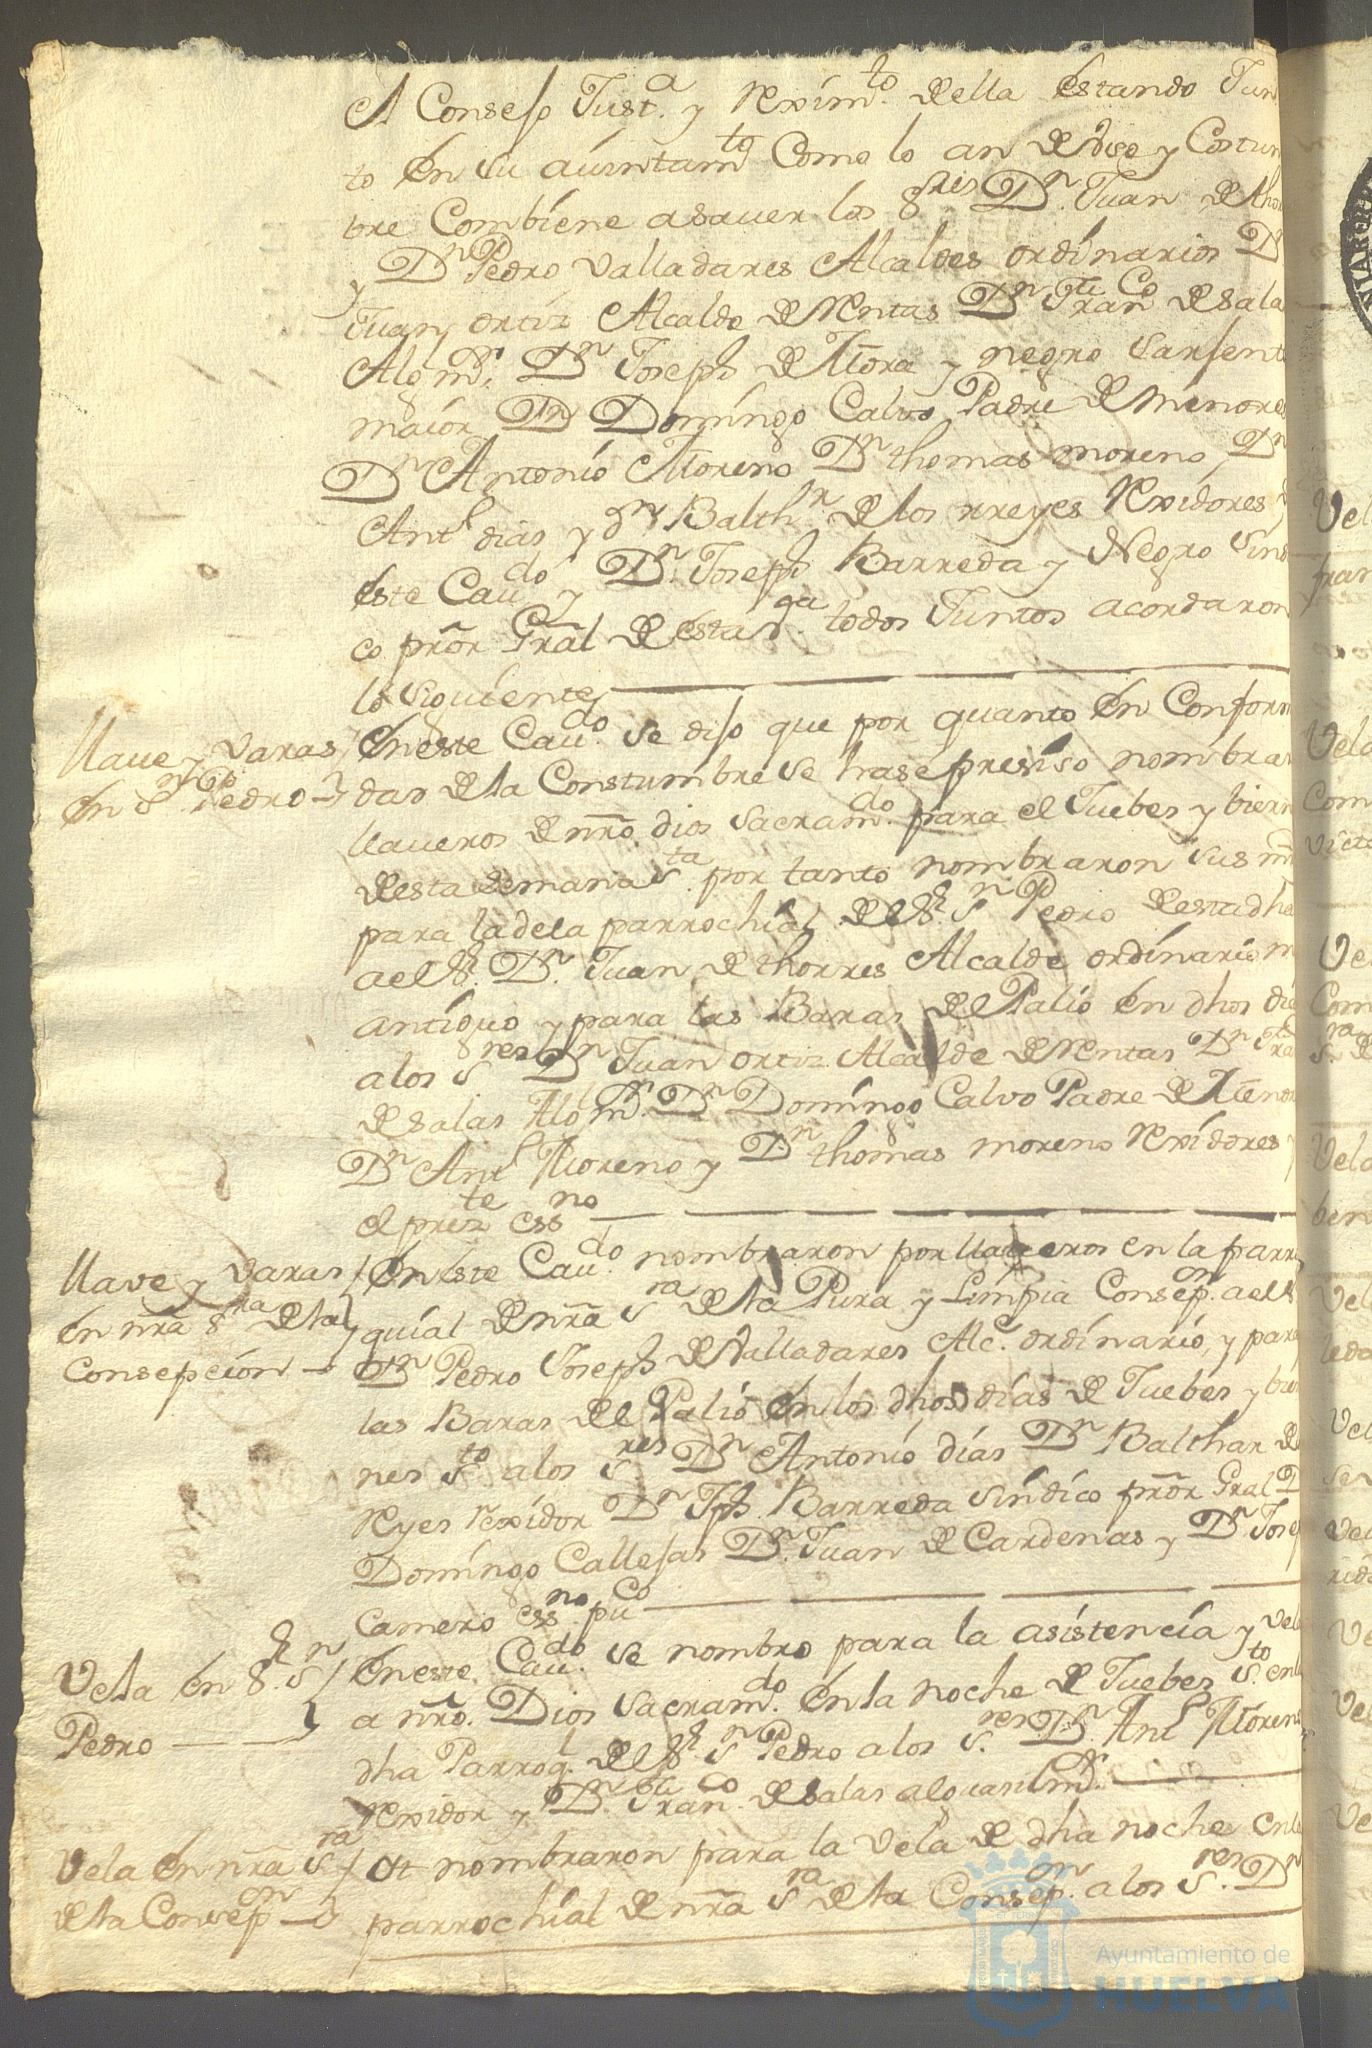 A Consejo Just.ª y Reximto. de ella estando Jun
to en su aiuntamto Como lo an de Vso y Costum
bre Combiene a sauer los Sres Dn. Juan de tho
y Dn Pedro Valladares Alcaldes ordinarios D
Juan ortiz Alcalde de Rentas Dn Franco de Sala
Alg mr. Dn Joseph de Mora y negro Sarjent
maior Dn Domingo Calvo Padre de Menores
Dn Antonio Moreno Dn thomas moreno, Dn
Antt dias y Dn Balthr de los rreyes Rexidores
este Caudo y Dn. Joseph Barreda y Negro Sind
co prõr Grãl de esta va. todos Juntos acordaron
lo siguiente
Llaue y Varas
en Sn Pedro
En este Caudo. se dijo que por quanto en Conform
dad de la Constumbre se hase presiso nombrar
llaueros de nrõ. dios Sacramdo. para el Juebes y biern
de esta Semana Sta. por tanto nombraron sus m
para la de la parrochial de el Sr. Sn Pedro de esta dha
a el Sr. Dn. Juan de thorres Alcalde ordinario m
antiguo y para las Baras de el Palio en dhos dia
a los Sres Dn Juan ortiz Alcalde de Rentas Dn Fra
de Salas Alg mr. Dn Domingo Calvo Padre de Menor
Dn Antt Moreno y Dn thomas moreno Rexidores y
el preste essno
Llave y Varas
en nrã Sra de la
Consepcion
En este Caudo. nombraron por llaueros en la parro
quial de nrã Sra de la Pura y Limpia Consepon. a el S
Dn Pedro Joseph de Valladares Alce. ordinario, y para
las Baras de el Palio en los dhos dias de Juebes y bier
nes Sto a los Sres Dn Antonio dias Dn Balthar de
Reyes rexidor Dn Jph. Barreda Sindico prõr Gral D
Domingo Callejas Dn. Juan de Cardenas y Dn Josep
Camero essno puco
Vela en Sr. Sn
Pedro
En este Caudo. se nombro para la asistencia y vela
a nrõ. Dios Sacramdo. en la noche de Juebes Sto. en la
dha Parroq. de el Sr. Sn Pedro a los Sres. Dn. Antt Moreno
rexidor y Dn. Franco. de Salas alguasil mr.
Vela en nrã Sra
de la Consepon
Ot nombraron para la Vela de dha noche en la
parrochial de nrã Sra de la Consepon. a los Sres. Dn
Ayuntamiento de
HUELVA